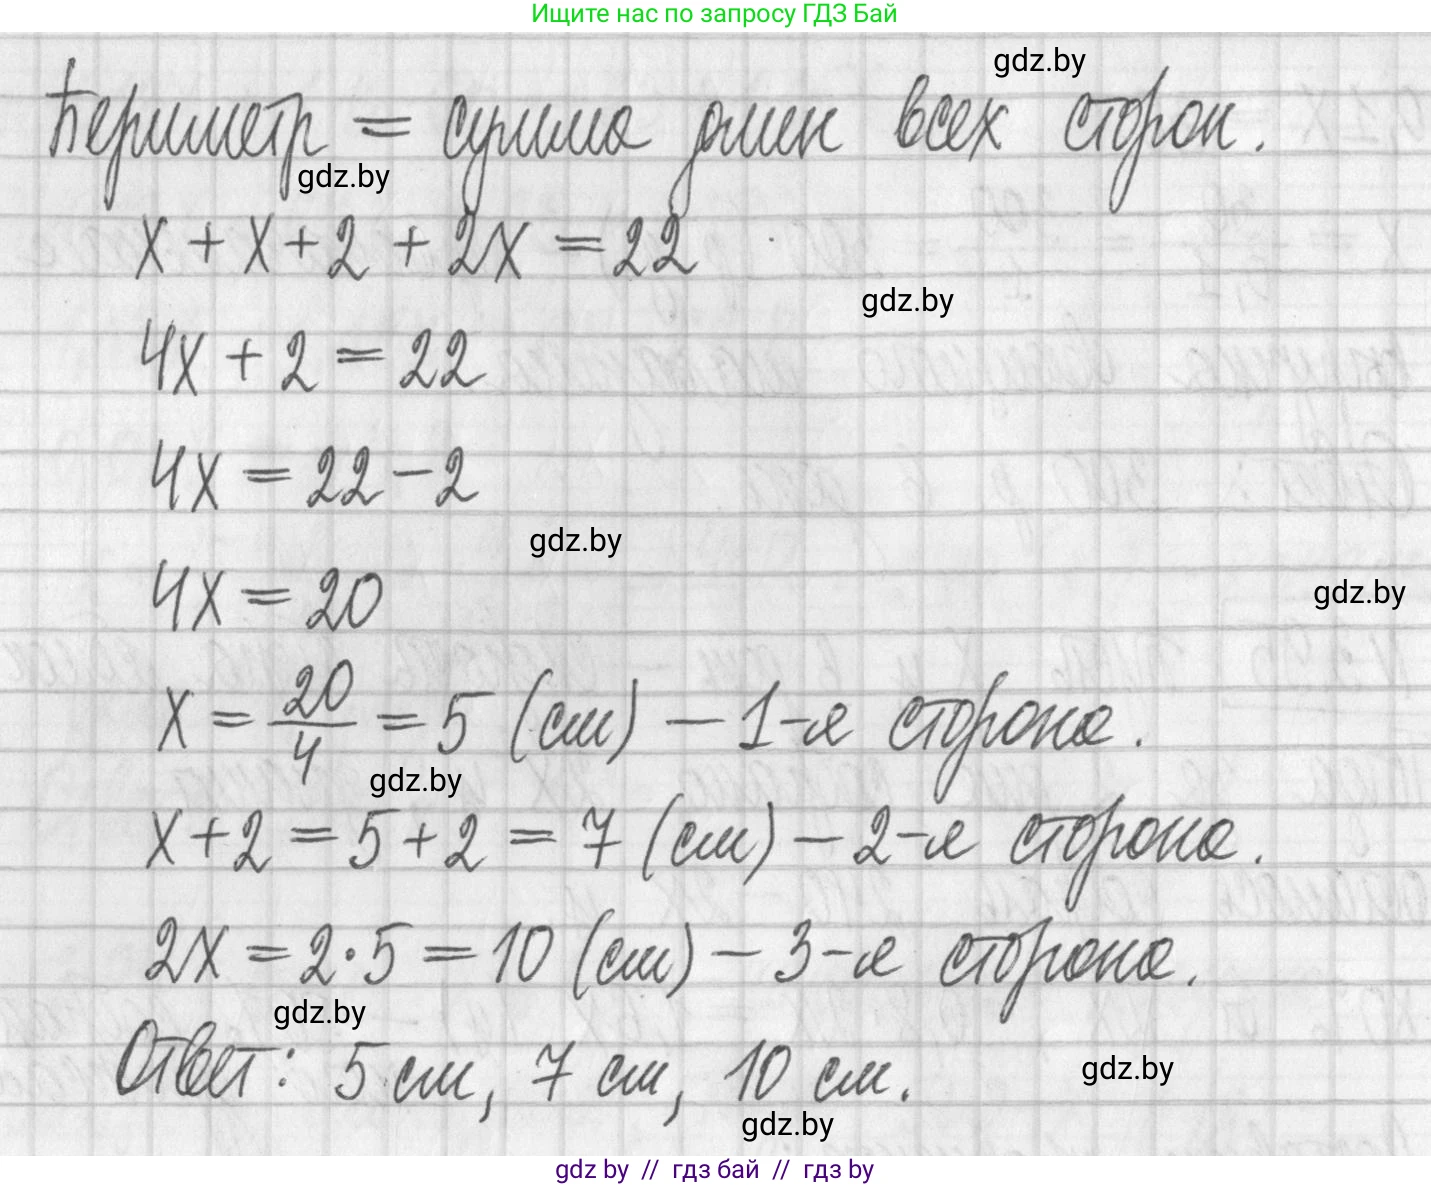 Ищите нас по запросу ГДЗ Бай
gdz.by
Периметр = сумма длин всех сторон.
gdz.by
x + x + 2 + 2x = 22
gdz.by
4x + 2 = 22
4x = 22 - 2
gdz.by
4x = 20
gdz.by
x = 20/4 = 5 (см) - 1-я сторона.
gdz.by
x + 2 = 5 + 2 = 7 (см) - 2-я сторона.
2x = 2 · 5 = 10 (см) - 3-я сторона.
gdz.by
Ответ: 5 см, 7 см, 10 см.
gdz.by
gdz.by
gdz by // гдз бай // гдз by